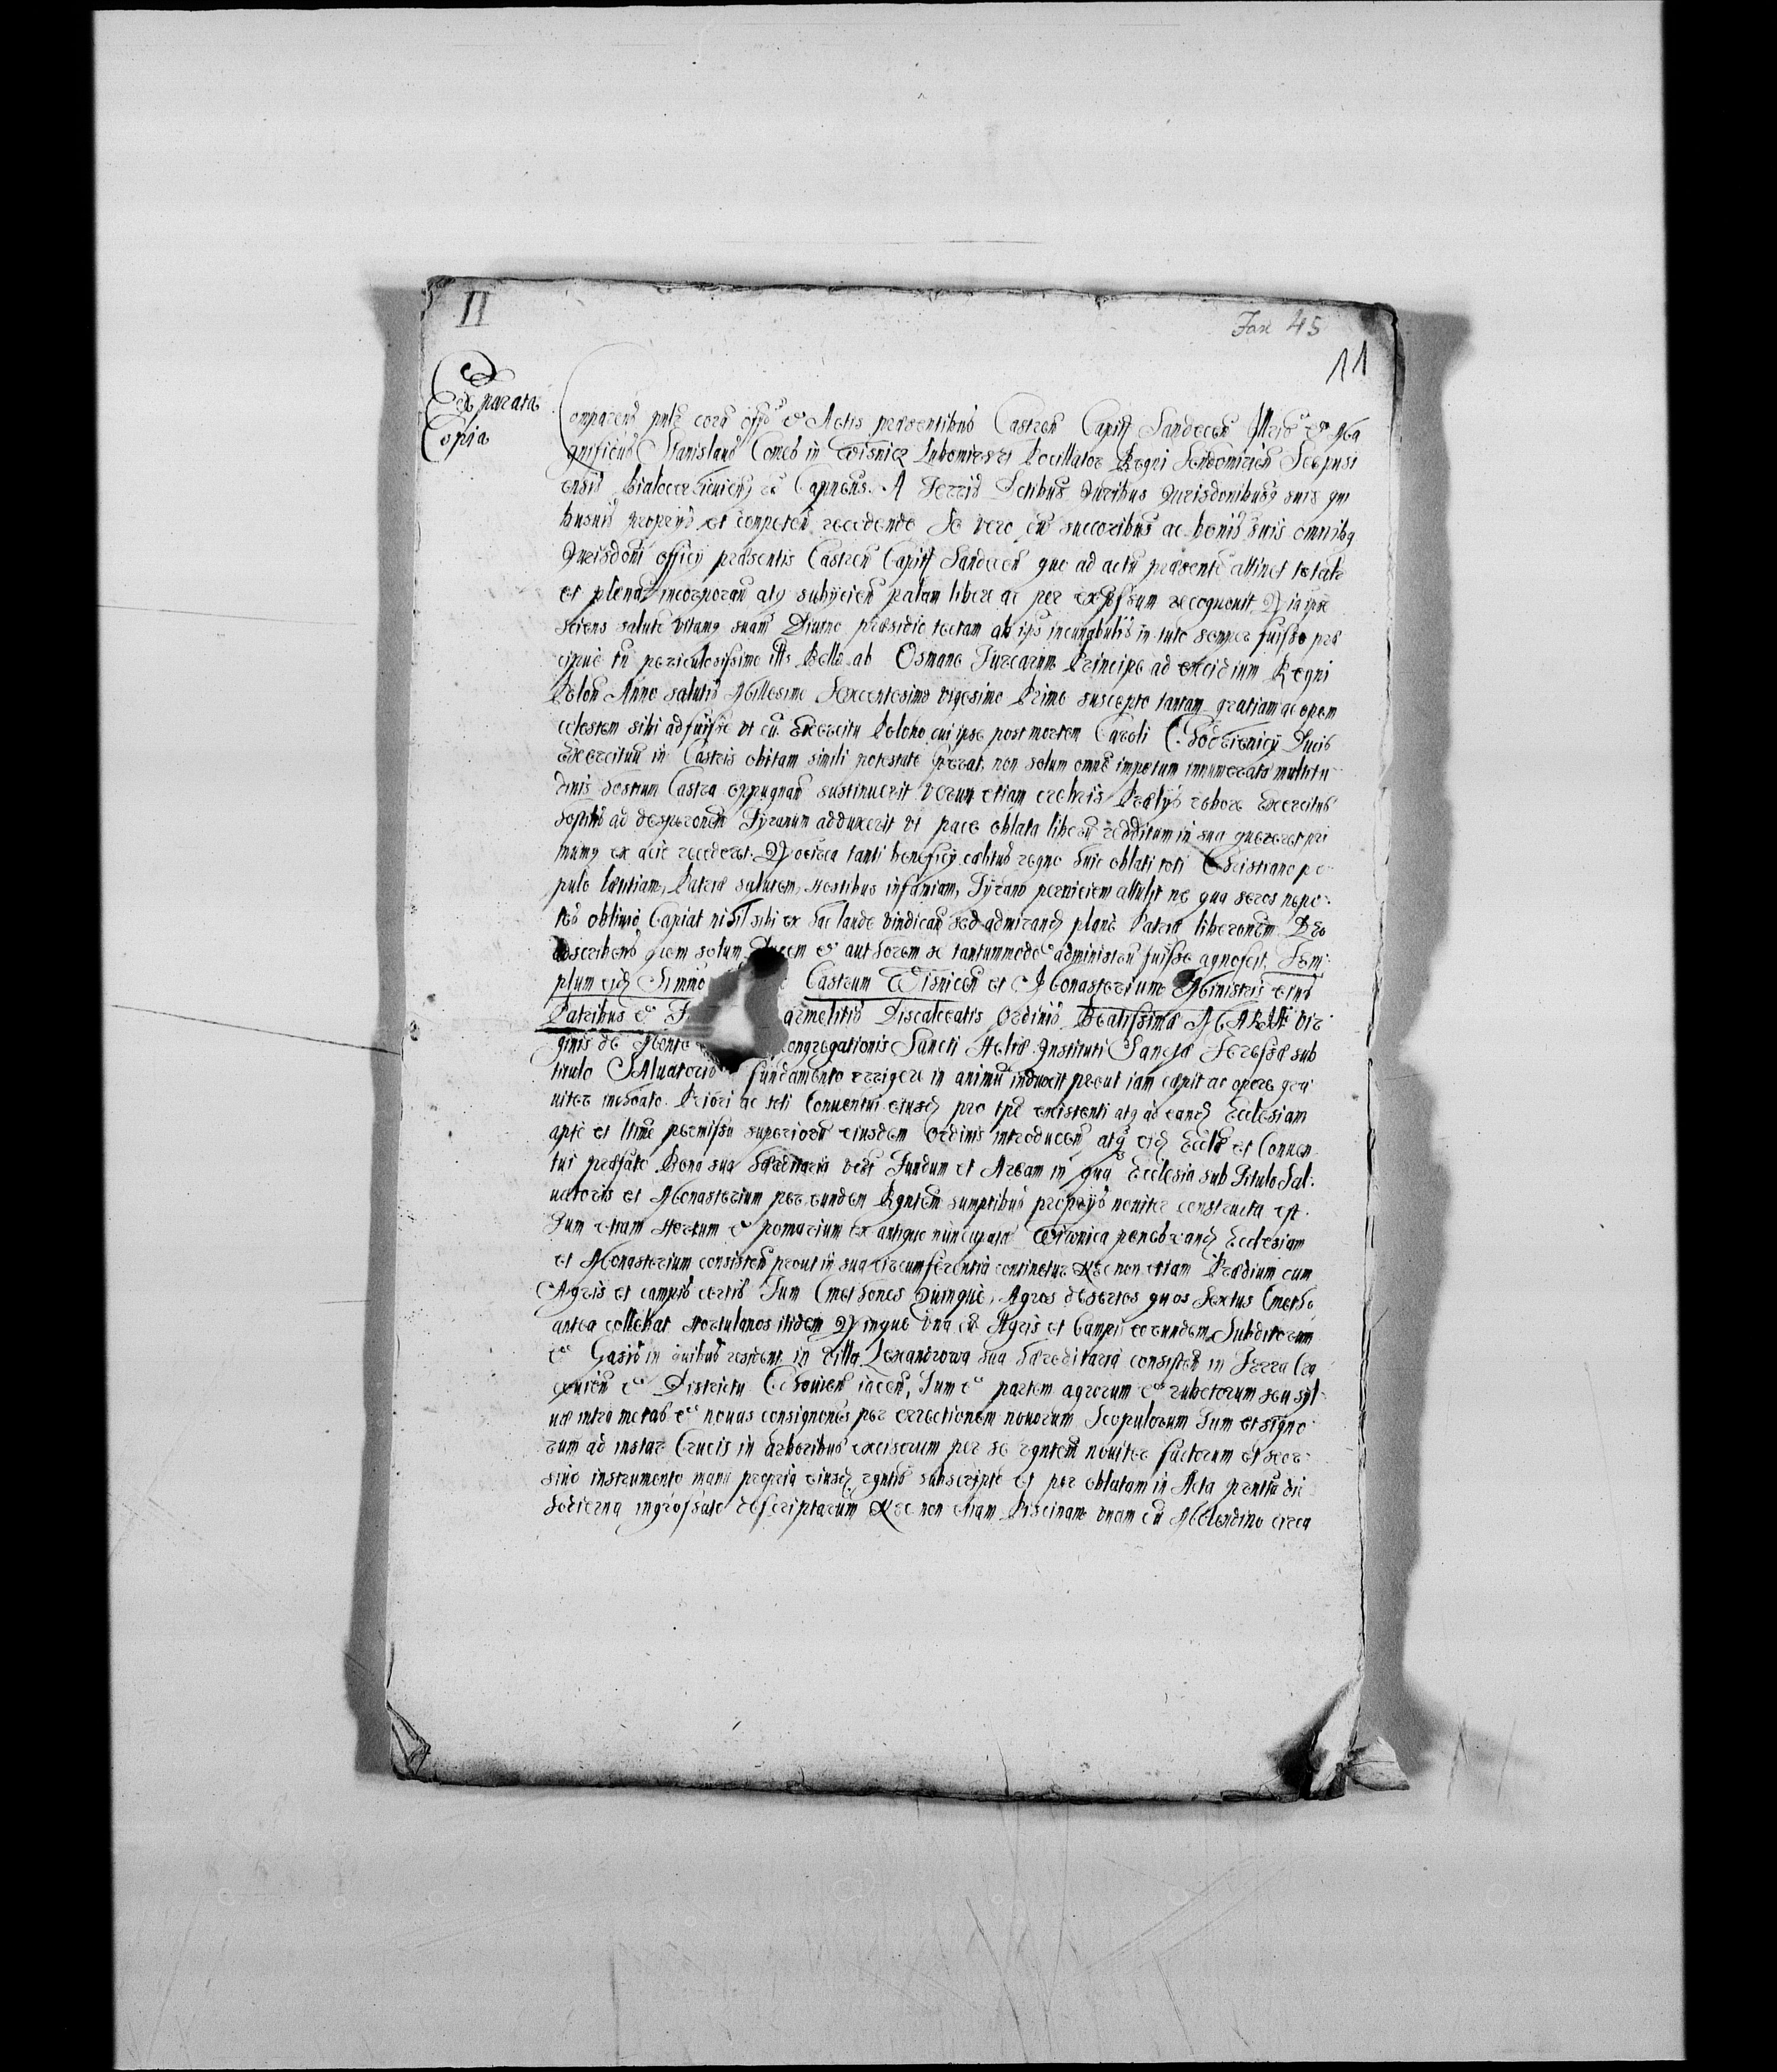 II
Fase 45
11
Ex parata
Copia
Comparens coram offo et Actis praesentibus Castren Capitl Sandecen Illris et Ma
gnificus Stanislaus Comes in Wisnicz Lubomirski Pocillator Regni Sendomirien Scepusi
ensis Bialocerkieuien Capneus. A Terris Juribus Jurisdonibusq suis qui
busuis proprys et competen recedendo Se vero cu succoribus ac bonis suis omnibq
Jurisdoni officy praesentis Castren Capitl Sandecen quo ad actu praesente attinet totalr
et plena incorporan atq subycien palam libere ac per expssum recognouit Quia ipse
sciens salute vitamq suam Diuino praesidio tectam ab ipsis incunabulis in tuto semper fuisse prae
cipue tn periculosissimo illo Bello ab Osmano Turcarum Principe ad excidium Regni
Polon Anno salutis Millesimo Sexcentesimo vigesimo Primo suscepto tantam gratiam ac opem
celestem sibi adfuisse vt cu Exercitu Polono cui ipse post mortem Caroli C. Hodkieuicy Ducis
Exercituu in Castris obitam simili potestate pserat, non solum omne impetum innumerato multitu
dinis hostium Castra expugnan sustinuerit verum etiam crebris Praelys robore Exercitus
hostilis ad desperonem Tyranum adduxerit vt pace oblata liberu redditum in sua quereret pri
musq ex acie recederet. Quocirca tanti beneficy caelitus regno huic oblati toti Christiano po
pulo laetitiam, Patriae salutem, Hostibus infamiam, Tyrano perniciem attulit ne qua seros nepo
tes obliuio Capiat nihil sibi ex hac laude vindican sed admirandq plane Patriae liberonem Deo
adscribens quem solum Ducem et authorem se tantummodo administru fuisse agnoscit, Tem
plum eidq Summo Castrum Wisnicen et Monasterium Ministris eius
Patribus et F armelitis Discalceatis Ordinis Beatissimae MARIAE Vir
ginis de Monte ongregationis Sancti Heliae Instituti Sanctae Teresae sub
titulo Saluatoris fundamento errigere in animu induxit prout iam caepit ac opere gra
uiter inchoato. Priori ac toti Conuentui eiusdq pro tpe existenti atq ad eandq Ecclesiam
apte et ltime permissu superioru eiusdem Ordinis introducen atq eidq Eccle et Conuen
tui praefato Bona sua Haereditaria vidt Fundum et Aream in qua Ecclesia sub Titulo Sal
uatoris et Monasterium per eundem Rgntem sumptibus proprys nouiter constructa est.
Tum etiam Hortum et pomarium ex antiquo nuncupata penes eandq Ecclesiam
et Monasterium consisten prout in sua circumferentia continetur Nec non etiam Praedium cum
Agris et campis certis Tum Cmethones Quinque, Agros desertos quos Sextus Cmetho
antea collebat Hortulanos itidem Quinque vna cu Agris et Campis eorundem Subditorum
et Casis in quibus resident in Villa Lexandrowa sua haereditaria consisten in Terra Cra
couien et Districtu Cchouien iacen, Tum et partem agrorum et rubetorum seu syl
uae intra metas et nouas consignones per errectionem nouorum Scopulorum Tum et signo
rum ad instar Crucis in arboribus excisorum per se rgntem nouiter factorum et seor
siuo instrumento manu propria eiusdq rgntis subscripto et per oblatam in Acta prentia die
hodierna ingrossato descriptarum Nec non etiam Piscinam vnam cu Molendino circa